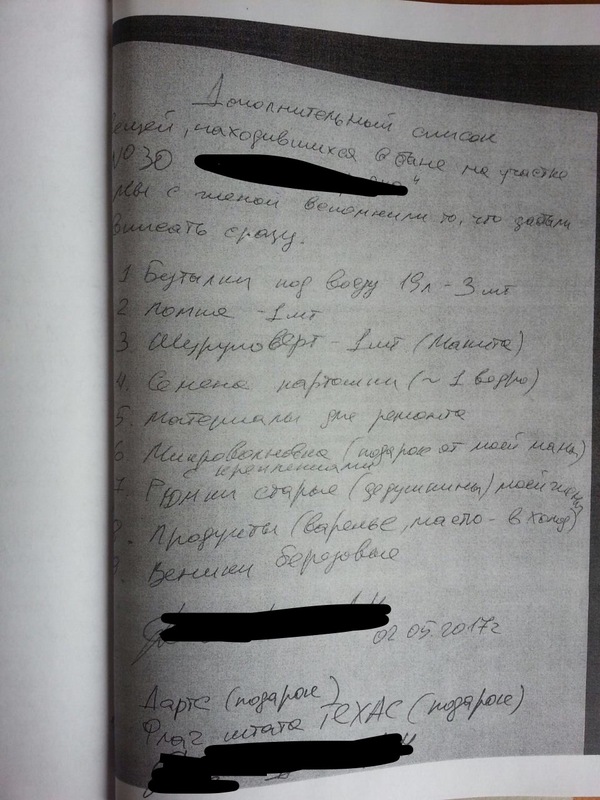 Дополнительный список
вещей, находившихся в бане на участке
№30
мы с женой вспомнили то, что забыли
вписать сразу.
1 Бутылки под воду 19л - 3шт
2 -1шт
3. Шуруповерт - 1шт (Макита)
4. Семена картошки (~ 1 ведро)
5. Материалы для ремонта
6 Микроволновка (подарок от моей мамы)
креплениями
7. Рюмки старые (дедушкины) моей жены
8. Продукты (варенье, масло - в холод)
9. Веники березовые
02.05.2017г
Дартс (подарок)
Флаг штата ТЕХАС (подарок)